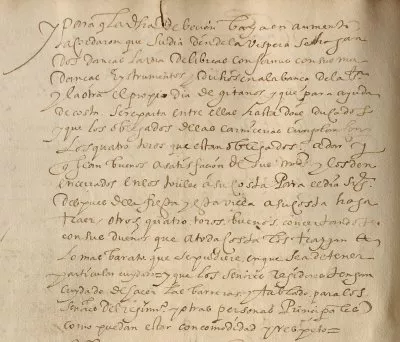 y para q la dha deboçion baya en aumento
acordaron que su dia dende la vespera se hagan
dos danças la vna de libreas conforme con su mu
danças e ynstrumentos de la
y la otra el propio dia de gitanos y que para ayuda
de costa se reparta entre ellas hasta doze ducados
y que los obligados de las carnicerias cumplan con
Los quatro toros que estan obligados a dar y
q sean buenos a satisfaçion de su md y los den
encerrados en los toriles a su costa Para el dia
despues de la fiesta y esta villa a su costa haga
traer otros quatro toros buenos concertandose
con sus dueños que a toda costa los traygan
lo mas barato que se pudiere en que se a de tener
particular cuydado y que los señores regidores tengan
cuydado de hacer las barreras y tablado para los
señores del regimio y otras personas Principales
como puedan estar con comodidad y respeto